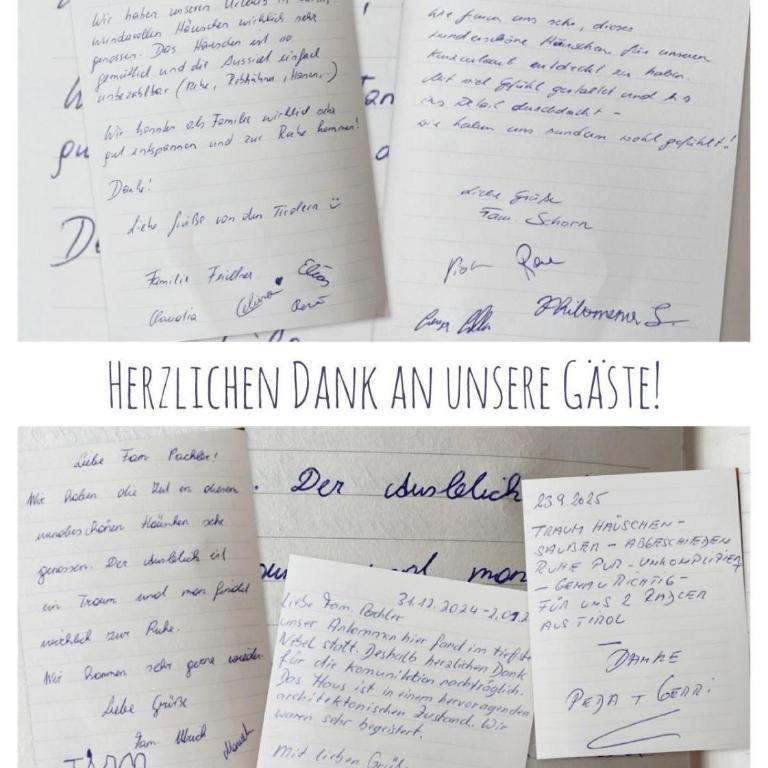 Wir haben unseren Urlaub in
wundervollen Häuschen wirklich sehr
genossen. Das Häuschen ist so
gemütlich und die Aussicht einfach
unbezahlbar (Rehe, Rebhühner, Hasen...)
Wir konnten als Familie wirklich sehr
gut entspannen und zur Ruhe kommen!
Danke!
Liebe Grüße von den Tirolern
Familie Friedher
Claudia Celina Elias
René
Wir freuen uns sehr, dieses
wunderschöne Häuschen für unseren
Kurzurlaub entdeckt zu haben.
Mit viel Gefühl gestaltet und bis
ins Detail durchdacht -
wir haben uns rundum wohl gefühlt!
Liebe Grüße
Fam. Schorn
Philomena S.
HERZLICHEN DANK AN UNSERE GÄSTE!
Liebe Fam Pachler!
Wir haben die Zeit in diesem
wunderschönen Häuschen sehr
genossen. Der Ausblick ist
ein Traum und man findet
wirklich zur Ruhe.
Wir kommen sehr gerne wieder.
Liebe Grüße
Fam. Ulrich
. Der Ausblick
man
Liebe Fam. Pachler 31.12.2024-2.01.2
unser Ankommen hier fand im tiefste
Nebel statt. Deshalb herzlichen Dank
für die Komunikation nachträglich.
Das Haus ist in einem hervoragenden
architektonischen Zustand. Wir
waren sehr begeistert.
Mit lieben Grüß
23.9.2025
TRAUM HÄUSCHEN -
SAUBER - ABGESCHIEDEN
RUHE PUR - UNKOMPLIZIER
- GENAU RICHTIG -
FÜR UNS 2 RADLER
AUS TIROL
DANKE
PEPA + GERRI